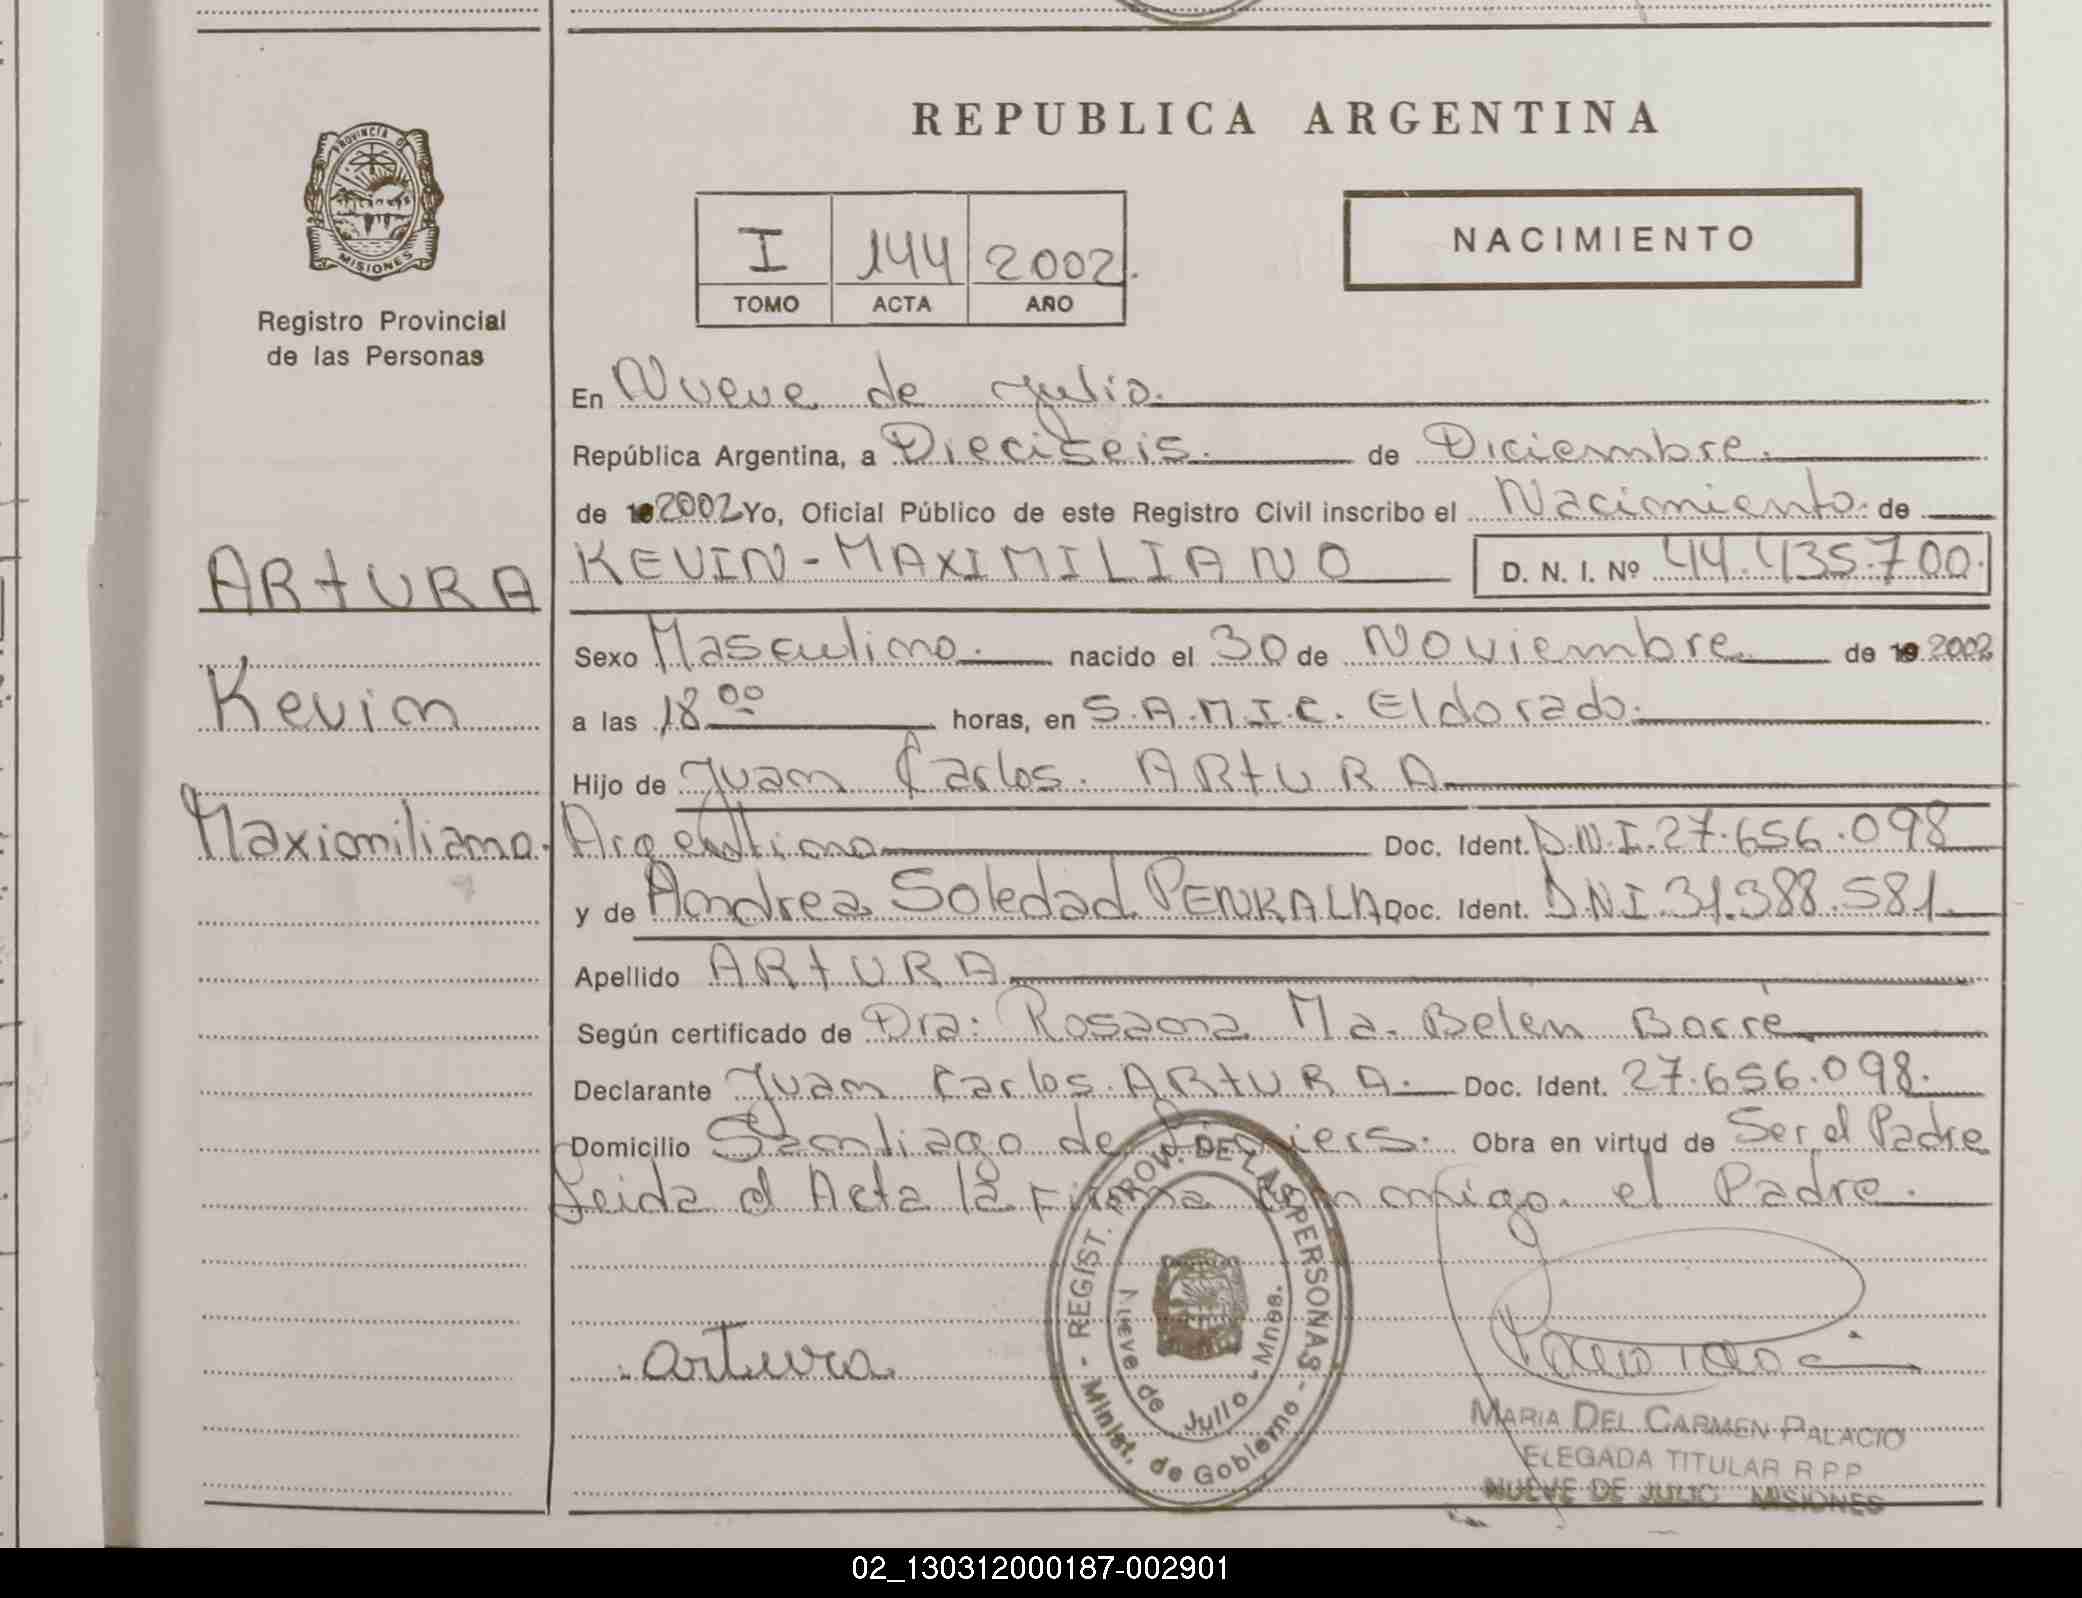 REPUBLICA ARGENTINA
PROVINCIA DE MISIONES
Registro Provincial
de las Personas
I 144 2002.
TOMO ACTA AÑO
NACIMIENTO
En Nueve de Julio.
República Argentina, a Dieciseis. de Diciembre.
de 2002 Yo, Oficial Público de este Registro Civil inscribo el Nacimiento de
ARtURA
KEVIN-MAXIMILIANO D. N. I. Nº 44.435.700.
Sexo Masculino. nacido el 30 de Noviembre de 2002
Kevin
a las 18 00 horas, en S.A.M.I.C. Eldorado.
Hijo de Juan Carlos. ARtURA
Maximiliano.
Argentino Doc. Ident. D.N.I.27.656.098
y de Andrea Soledad PENKALA Doc. Ident. DNI.31.388.581
Apellido ARtURA
Según certificado de Dra: Rosana Ma. Belen Borré
Declarante Juan Carlos.ARtURA. Doc. Ident. 27.656.098.
Domicilio Santiago de Liniers. Obra en virtud de Ser el Padre
Leida el Acta la Firma conmigo el Padre.
- REGIST. PROV. DE LAS PERSONAS -
Minist. de Gobierno
Nueve de Julio - Mnes.
artura
MARIA DEL CARMEN PALACIO
ELEGADA TITULAR R P P
NUEVE DE JULIO MISIONES
02_130312000187-002901